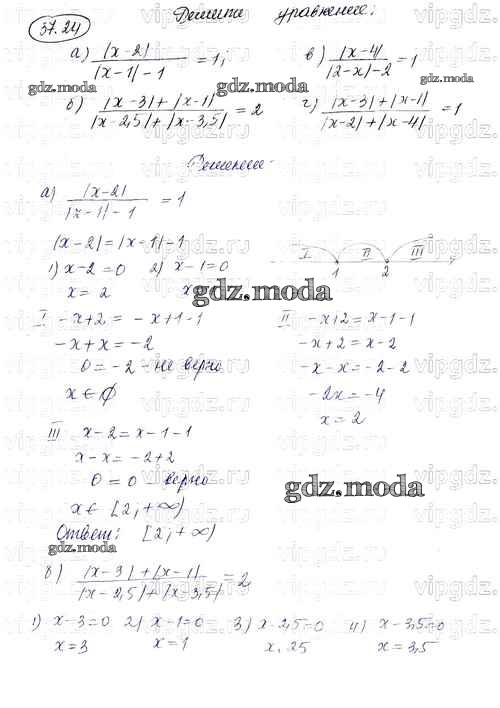 37.24
Решить уравнение:
а) |x-2| / (|x-1|-1) = 1;
в) |x-4| / (|2-x|-2) = 1
gdz.moda
gdz.moda
б) (|x-3|+|x-1|) / (|x-2,5|+|x-3,5|) = 2
г) (|x-3|+|x-1|) / (|x-2|+|x-4|) = 1
Решение
а) |x-2| / (|x-1|-1) = 1
|x-2|=|x-1|-1
1) x-2=0 2) x-1=0
x=2
I II III
1 2
gdz.moda
I -x+2 = -x+1-1
-x+x=-2
0=-2 - не верно
x∈∅
II -x+2=x-1-1
-x+2=x-2
-x-x=-2-2
-2x=-4
x=2
III x-2=x-1-1
x-x=-2+2
0=0 - верно
x∈[2;+∞)
gdz.moda
Ответ: [2;+∞)
gdz.moda
б) (|x-3|+|x-1|) / (|x-2,5|+|x-3,5|) = 2
1) x-3=0 2) x-1=0 3) x-2,5=0 4) x-3,5=0
x=3 x=1 x. 25 x=3,5
vipgdz.ru